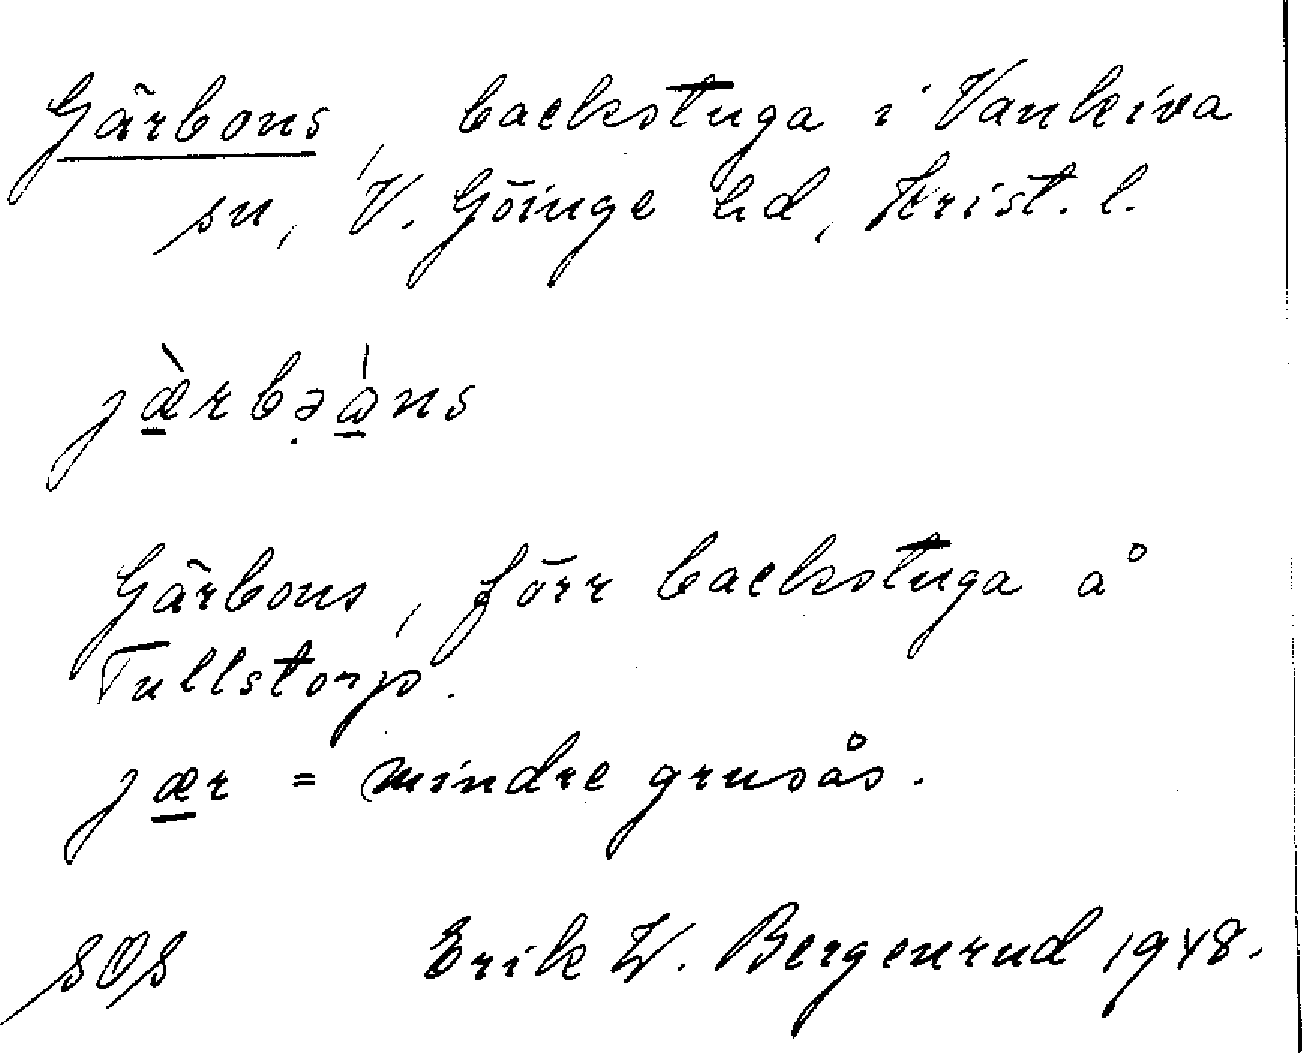 Gärbons, backstuga i Vankiva
sn, V. Göinge hd, Krist. l.
jæ̠̀rbə̣a̠̍ns
Gärbons, förr backstuga å
Tullstorp.
jæ̠r = mindre grusås.
SOS Erik W. Bergenrud 1948.